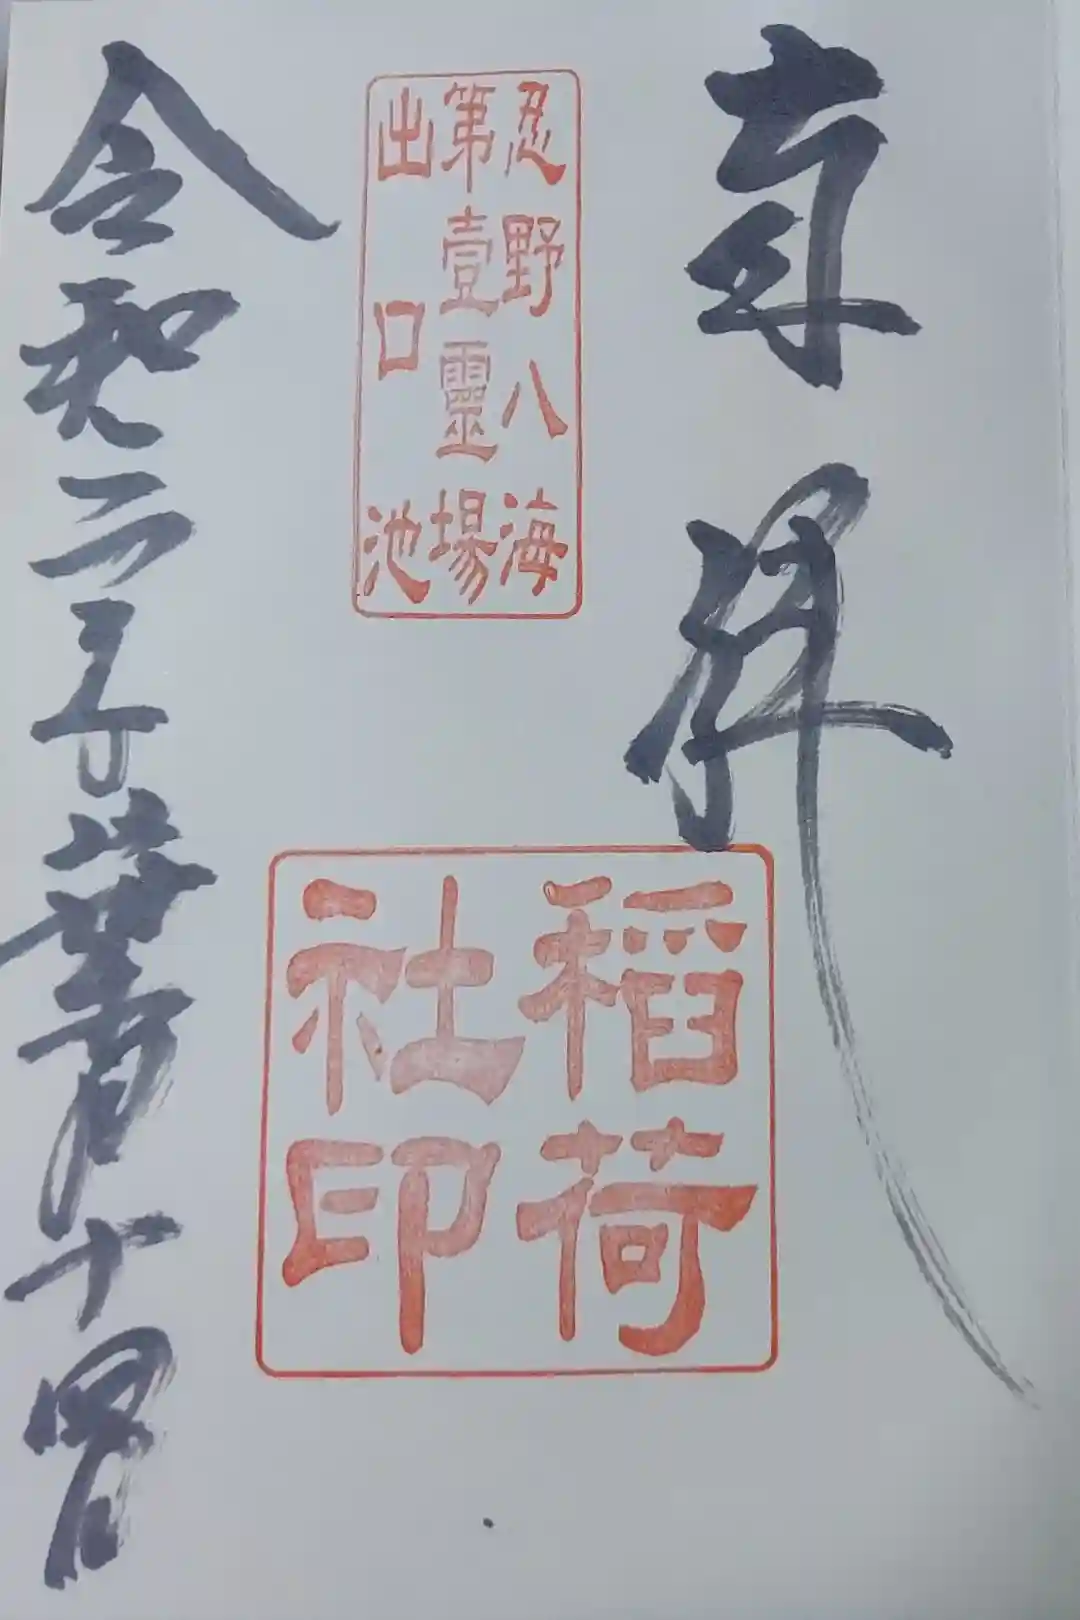 奉拝
忍野八海
第壹靈場
出口池
稻荷
社印
令和二年葉月十四日